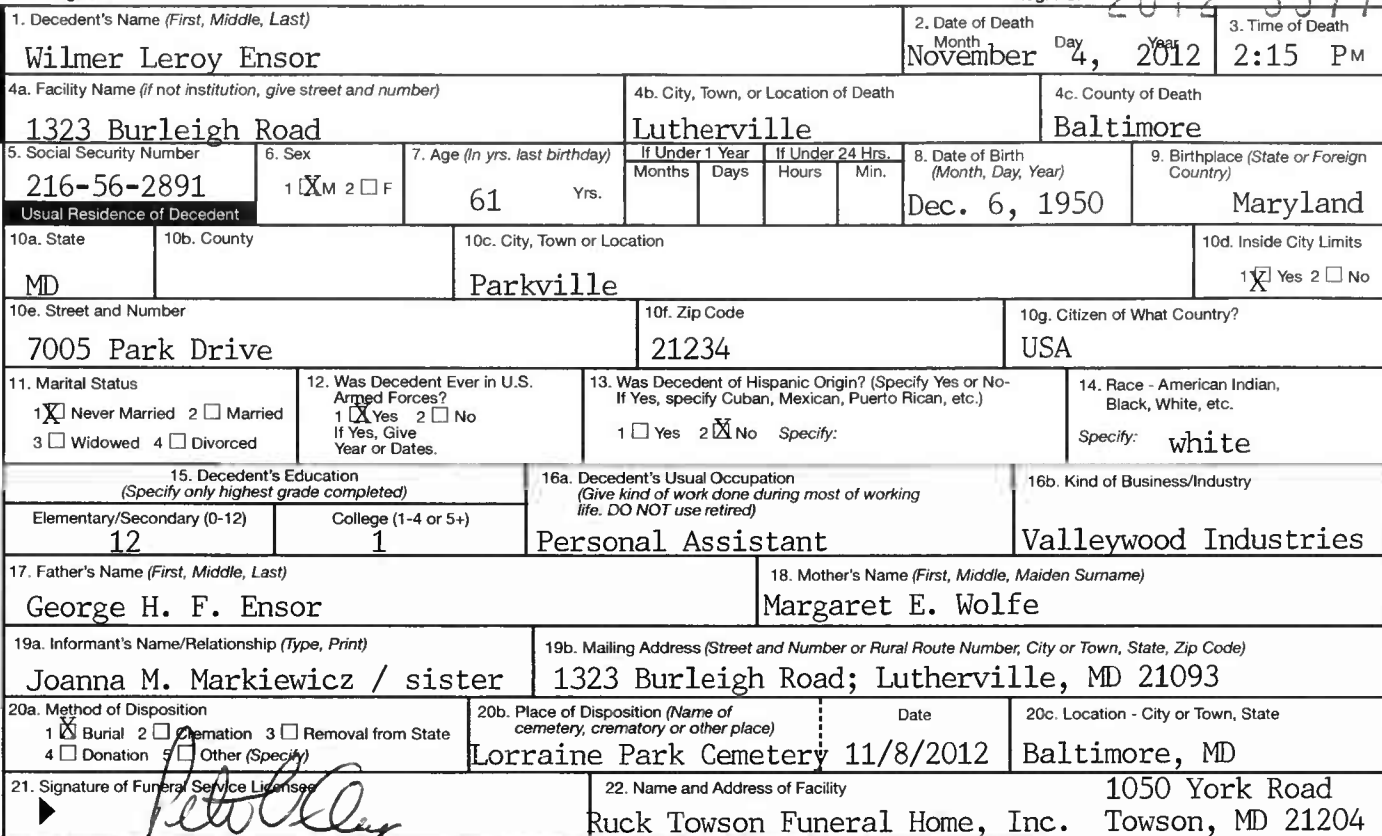 1. Decedent's Name (First, Middle, Last)
Wilmer Leroy Ensor
2. Date of Death
Month Day Year
November 4, 2012
3. Time of Death
2:15 PM
4a. Facility Name (if not institution, give street and number)
1323 Burleigh Road
4b. City, Town, or Location of Death
Lutherville
4c. County of Death
Baltimore
5. Social Security Number
216-56-2891
Usual Residence of Decedent
6. Sex
1 ☒ M 2 ☐ F
7. Age (In yrs. last birthday)
61 Yrs.
If Under 1 Year
Months Days
If Under 24 Hrs.
Hours Min.
8. Date of Birth
(Month, Day, Year)
Dec. 6, 1950
9. Birthplace (State or Foreign
Country)
Maryland
10a. State
MD
10b. County
10c. City, Town or Location
Parkville
10d. Inside City Limits
1 ☒ Yes 2 ☐ No
10e. Street and Number
7005 Park Drive
10f. Zip Code
21234
10g. Citizen of What Country?
USA
11. Marital Status
1 ☒ Never Married 2 ☐ Married
3 ☐ Widowed 4 ☐ Divorced
12. Was Decedent Ever in U.S.
Armed Forces?
1 ☒ Yes 2 ☐ No
If Yes, Give
Year or Dates.
13. Was Decedent of Hispanic Origin? (Specify Yes or No-
If Yes, specify Cuban, Mexican, Puerto Rican, etc.)
1 ☐ Yes 2 ☒ No Specify:
14. Race - American Indian,
Black, White, etc.
Specify: white
15. Decedent's Education
(Specify only highest grade completed)
Elementary/Secondary (0-12)
12
College (1-4 or 5+)
1
16a. Decedent's Usual Occupation
(Give kind of work done during most of working
life. DO NOT use retired)
Personal Assistant
16b. Kind of Business/Industry
Valleywood Industries
17. Father's Name (First, Middle, Last)
George H. F. Ensor
18. Mother's Name (First, Middle, Maiden Surname)
Margaret E. Wolfe
19a. Informant's Name/Relationship (Type, Print)
Joanna M. Markiewicz / sister
19b. Mailing Address (Street and Number or Rural Route Number, City or Town, State, Zip Code)
1323 Burleigh Road; Lutherville, MD 21093
20a. Method of Disposition
1 ☒ Burial 2 ☐ Cremation 3 ☐ Removal from State
4 ☐ Donation 5 ☐ Other (Specify)
20b. Place of Disposition (Name of
cemetery, crematory or other place)
Lorraine Park Cemetery
Date
11/8/2012
20c. Location - City or Town, State
Baltimore, MD
21. Signature of Funeral Service Licensee
22. Name and Address of Facility
1050 York Road
Ruck Towson Funeral Home, Inc. Towson, MD 21204